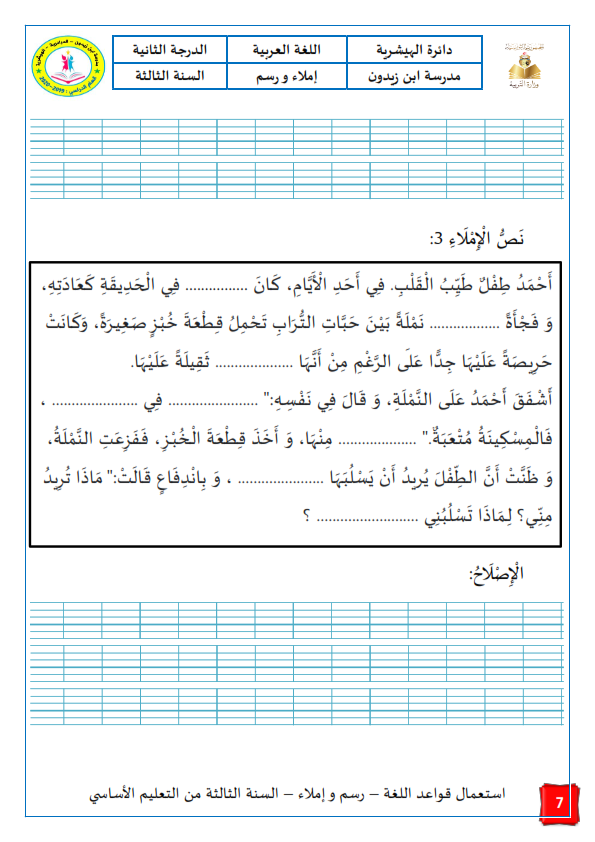 دائرة الهيشرية
اللغة العربية
الدرجة الثانية
مدرسة ابن زيدون
إملاء و رسم
السنة الثالثة
وزارة التربية
نَصُّ الْإِمْلَاءِ 3:
أَحْمَدُ طِفْلٌ طَيِّبُ الْقَلْبِ. فِي أَحَدِ الْأَيَّامِ، كَانَ ................ فِي الْحَدِيقَةِ كَعَادَتِهِ،
وَ فَجْأَةً .................. نَمْلَةً بَيْنَ حَبَّاتِ التُّرَابِ تَحْمِلُ قِطْعَةَ خُبْزٍ صَغِيرَةً، وَكَانَتْ
حَرِيصَةً عَلَيْهَا جِدًّا عَلَى الرَّغْمِ مِنْ أَنَّهَا .................... ثَقِيلَةً عَلَيْهَا.
أَشْفَقَ أَحْمَدُ عَلَى النَّمْلَةِ، وَ قَالَ فِي نَفْسِهِ:" ..................... فِي ...................... ،
فَالْمِسْكِينَةُ مُتْعَبَةٌ." .................... مِنْهَا، وَ أَخَذَ قِطْعَةَ الْخُبْزِ، فَفَزِعَتِ النَّمْلَةُ،
وَ ظَنَّتْ أَنَّ الطِّفْلَ يُرِيدُ أَنْ يَسْلُبَهَا ...................... ، وَ بِانْدِفَاعٍ قَالَتْ:" مَاذَا تُرِيدُ
مِنِّي؟ لِمَاذَا تَسْلُبُنِي .......................... ؟
الْإِصْلَاحُ:
استعمال قواعد اللغة – رسم و إملاء – السنة الثالثة من التعليم الأساسي
7